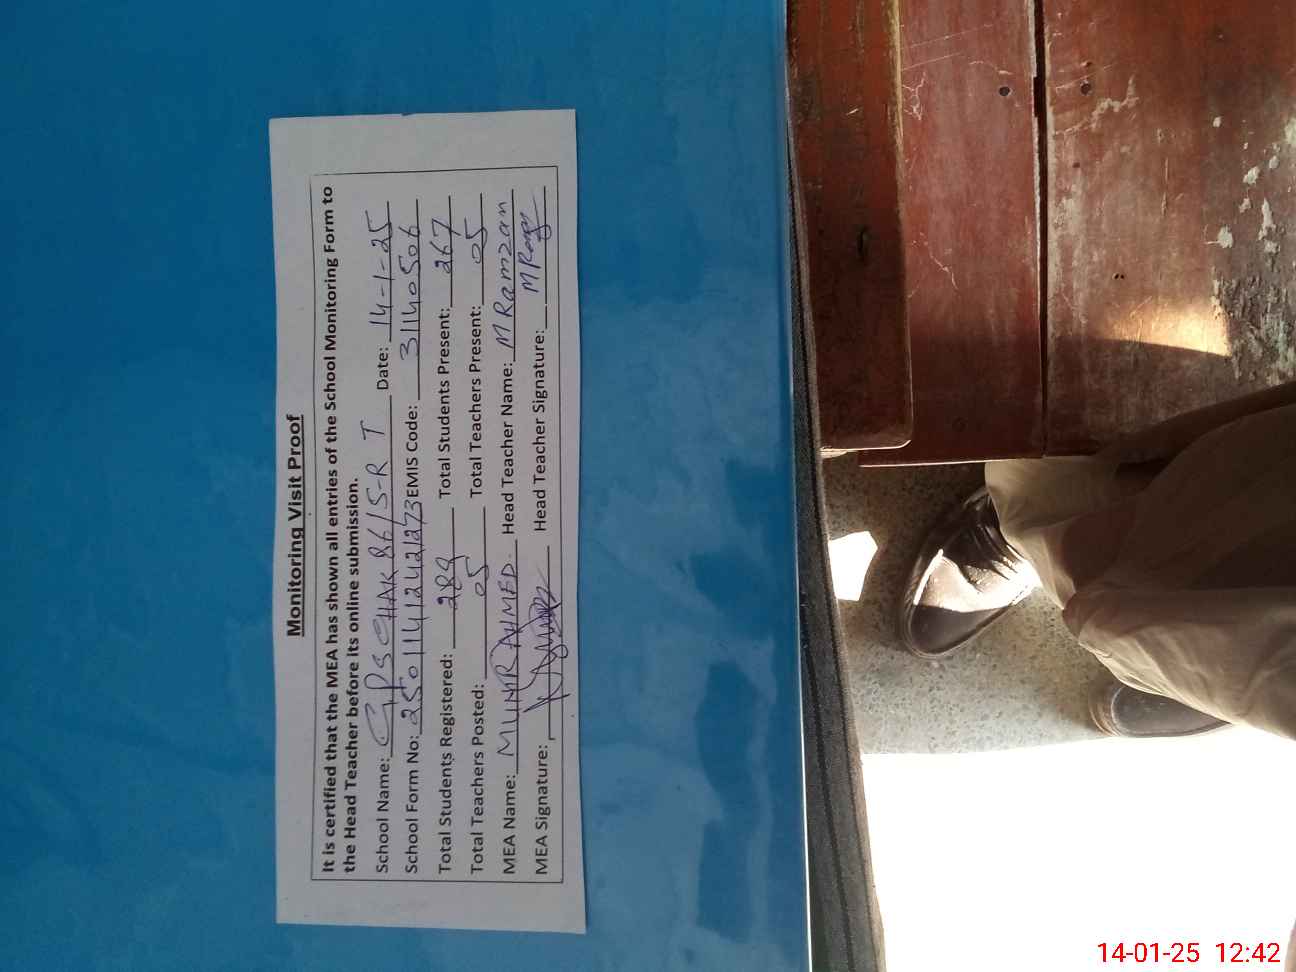 Monitoring Visit Proof
It is certified that the MEA has shown all entries of the School Monitoring Form to
the Head Teacher before its online submission.
School Name: GPS CHAK 86/5-R T Date: 14-1-25
School Form No: EMIS Code: 31140506
Total Students Registered: 289 Total Students Present: 267
Total Teachers Posted: 05 Total Teachers Present: 05
MEA Name: MUNIR AHMED Head Teacher Name: M Ramzan
MEA Signature: Head Teacher Signature:
14-01-25 12:42